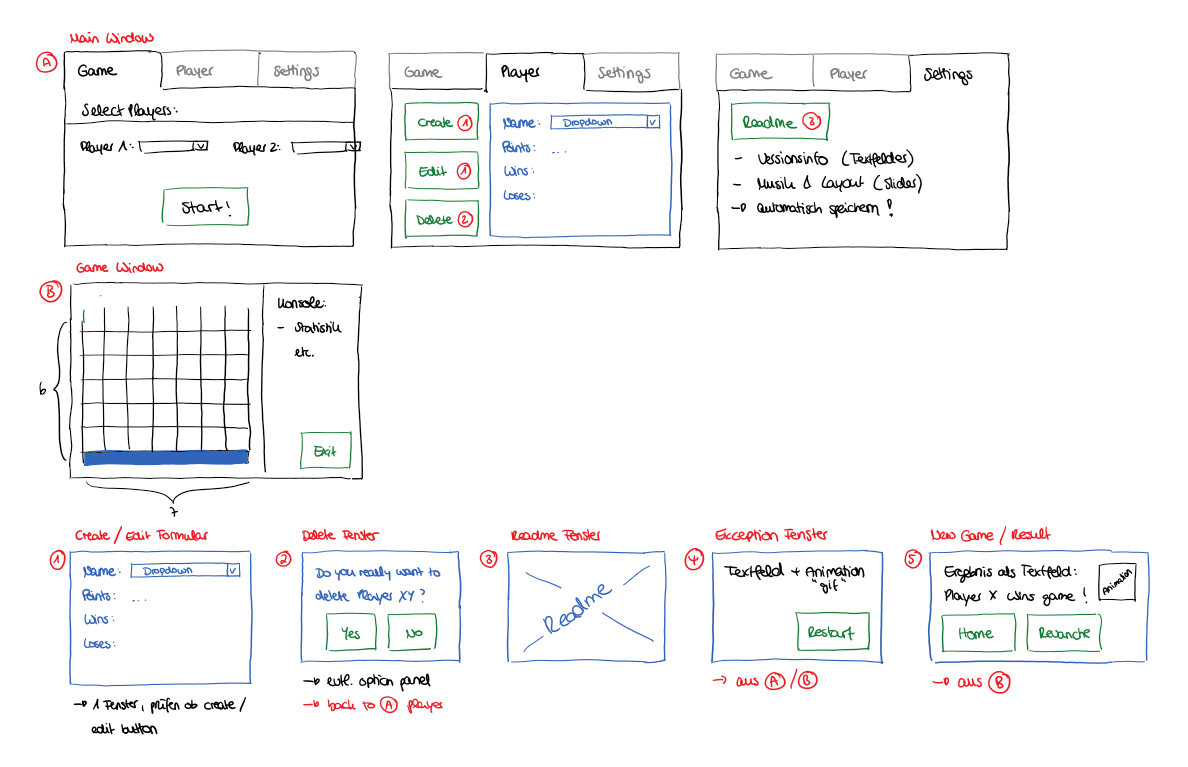 Main Window
A
Game Player Settings
Select Players:
Player 1: v Player 2: v
Start!
Game Player Settings
Create 1
Edit 1
Delete 2
Name: Dropdown v
Points: ...
Wins:
Loses:
Game Player Settings
Readme 3
- Versionsinfo (Textfelder)
- Musik & Layout (Slider)
→ automatisch speichern!
Game Window
B
6
7
Konsole:
- Statistik
etc.
Exit
Create / Edit Formular
1
Name: Dropdown v
Points: ...
Wins:
Loses:
→ 1 Fenster, prüfen ob create /
edit button
Delete Fenster
2
Do you really want to
delete Player XY?
Yes No
→ evtl. option panel
→ back to A player
Readme Fenster
3
Readme
Exception Fenster
4
Textfeld + Animation
"gif"
Restart
→ aus A / B
New Game / Result
5
Ergebnis als Textfeld:
Player X wins game!
Animation
Home Revanche
→ aus B